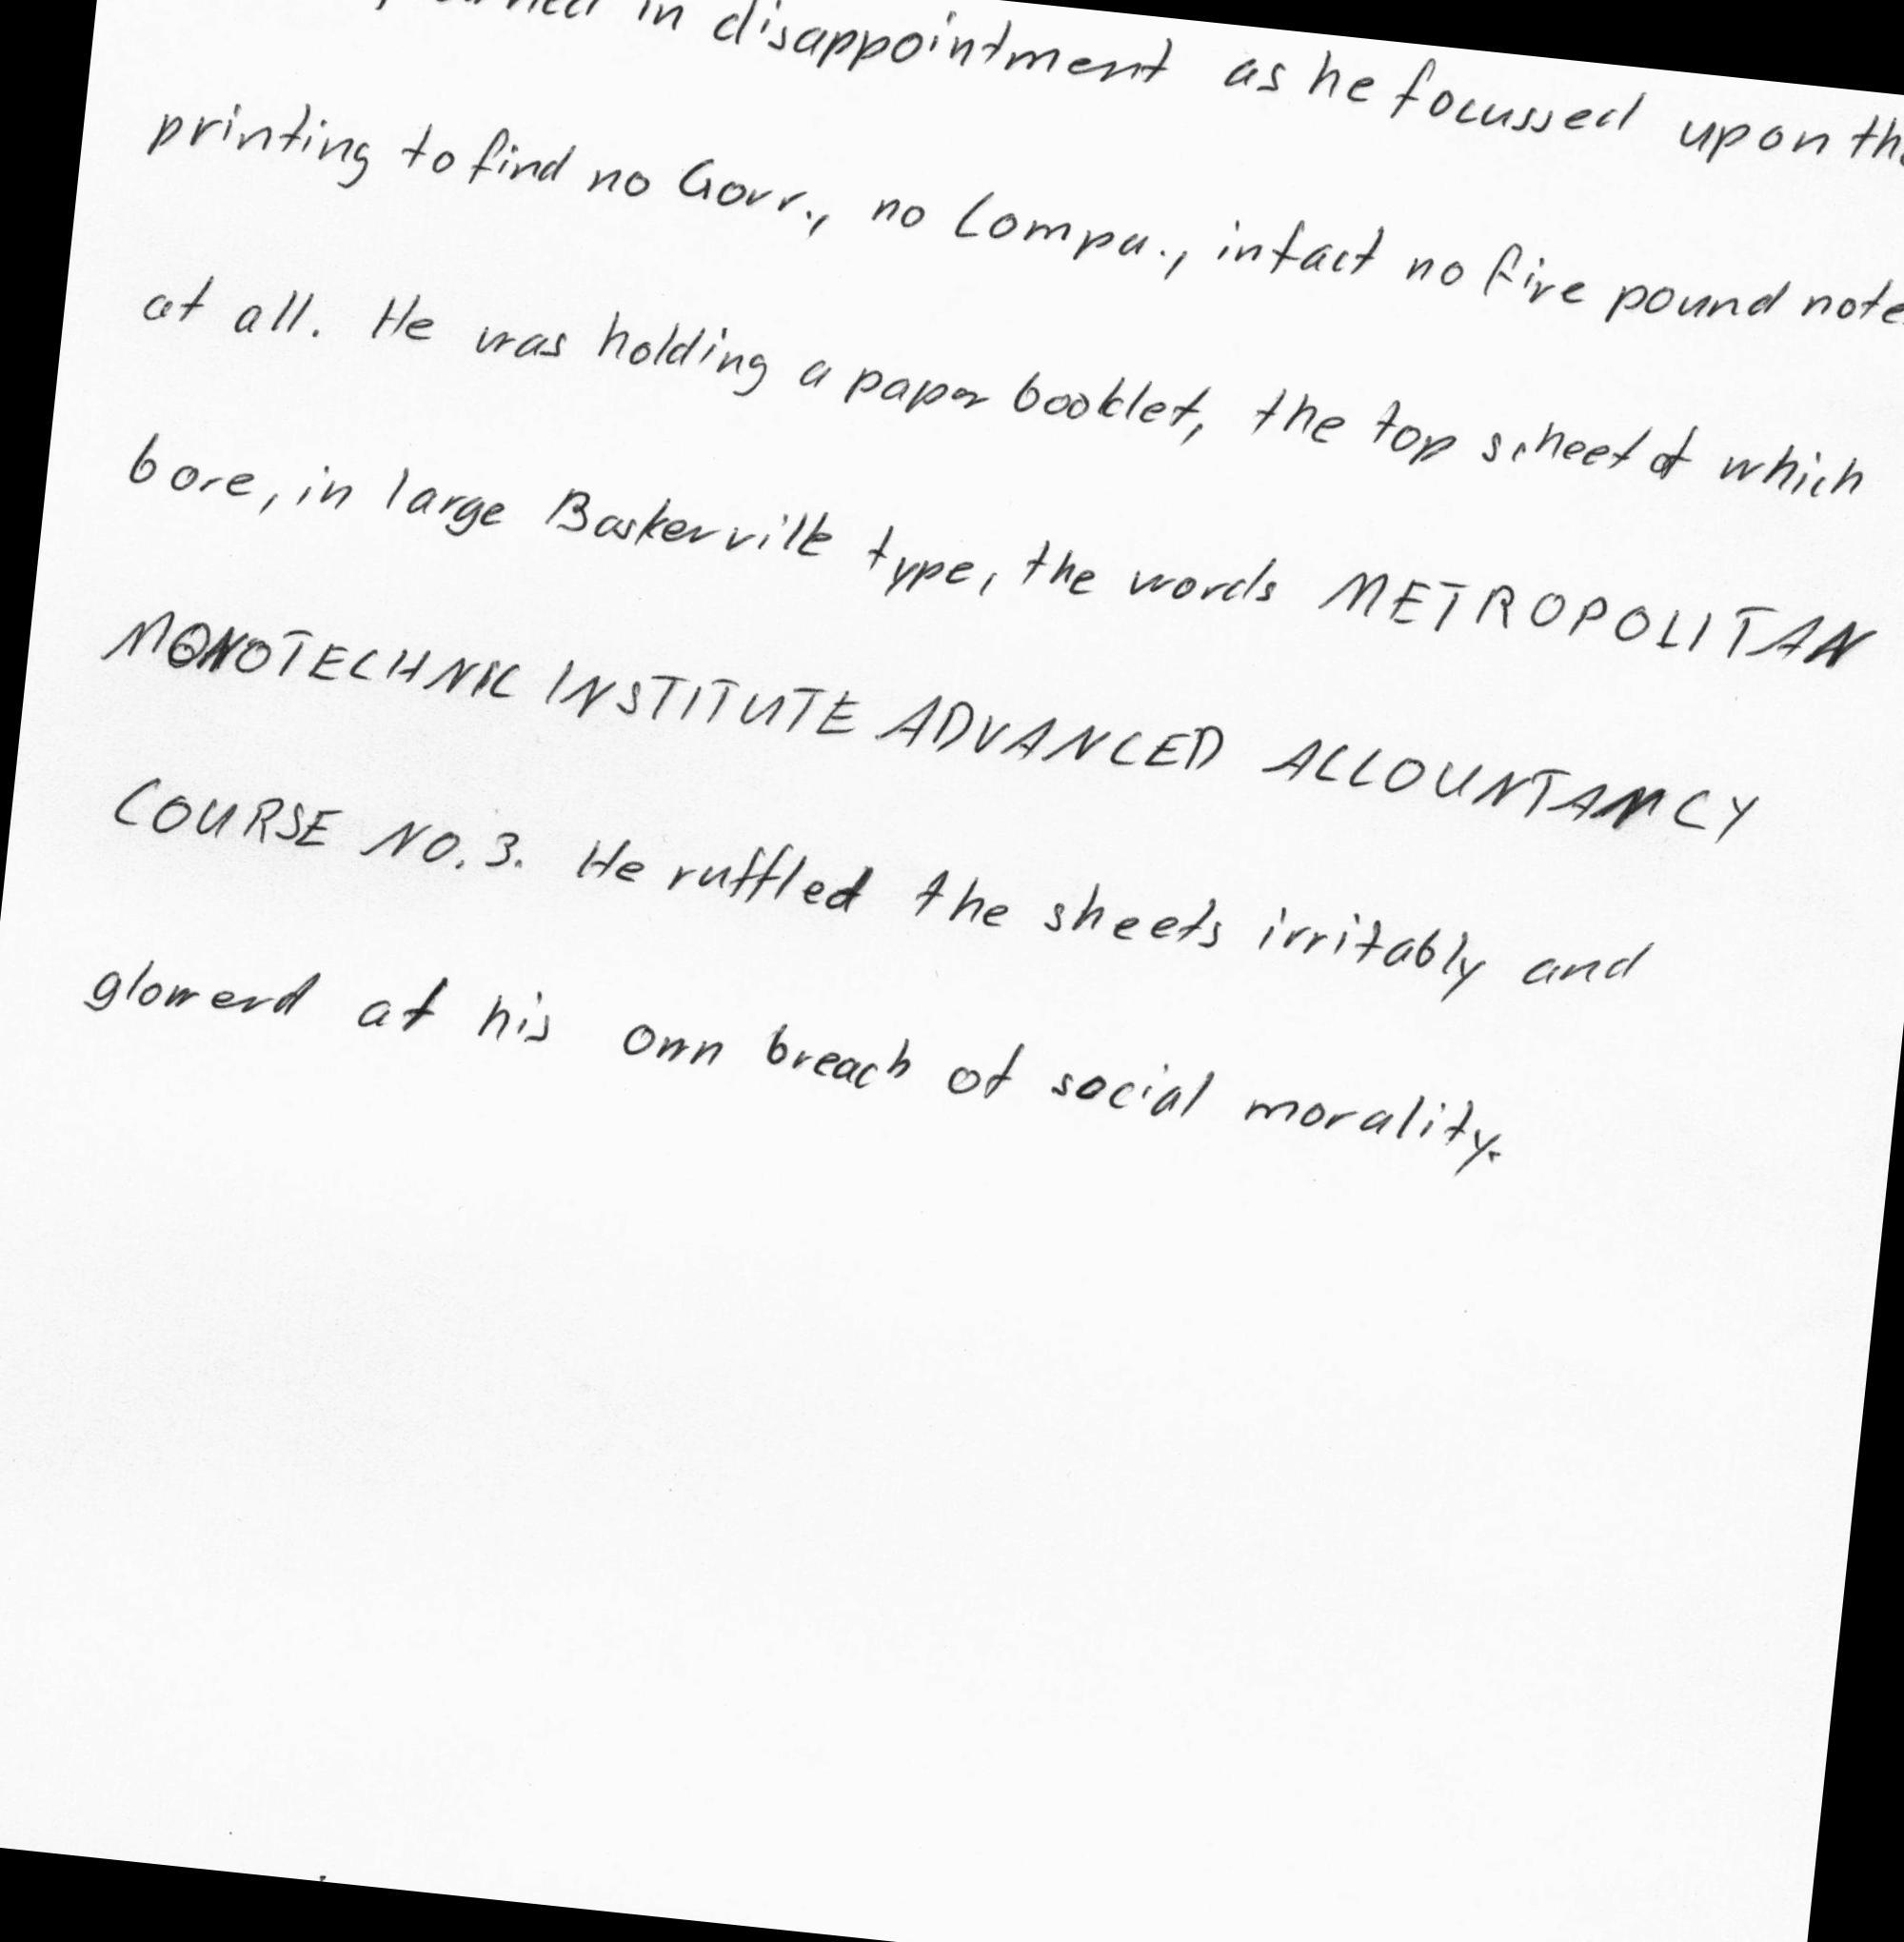 in disappointment as he focussed upon the
printing to find no Govr., no Compa., infact no five pound note
at all. He was holding a paper booklet, the top scheet of which
bore, in large Baskerville type, the words METROPOLITAN
MONOTECHNIC INSTITUTE ADVANCED ACCOUNTANCY
COURSE NO. 3. He ruffled the sheets irritably and
glowerd at his own breach of social morality.